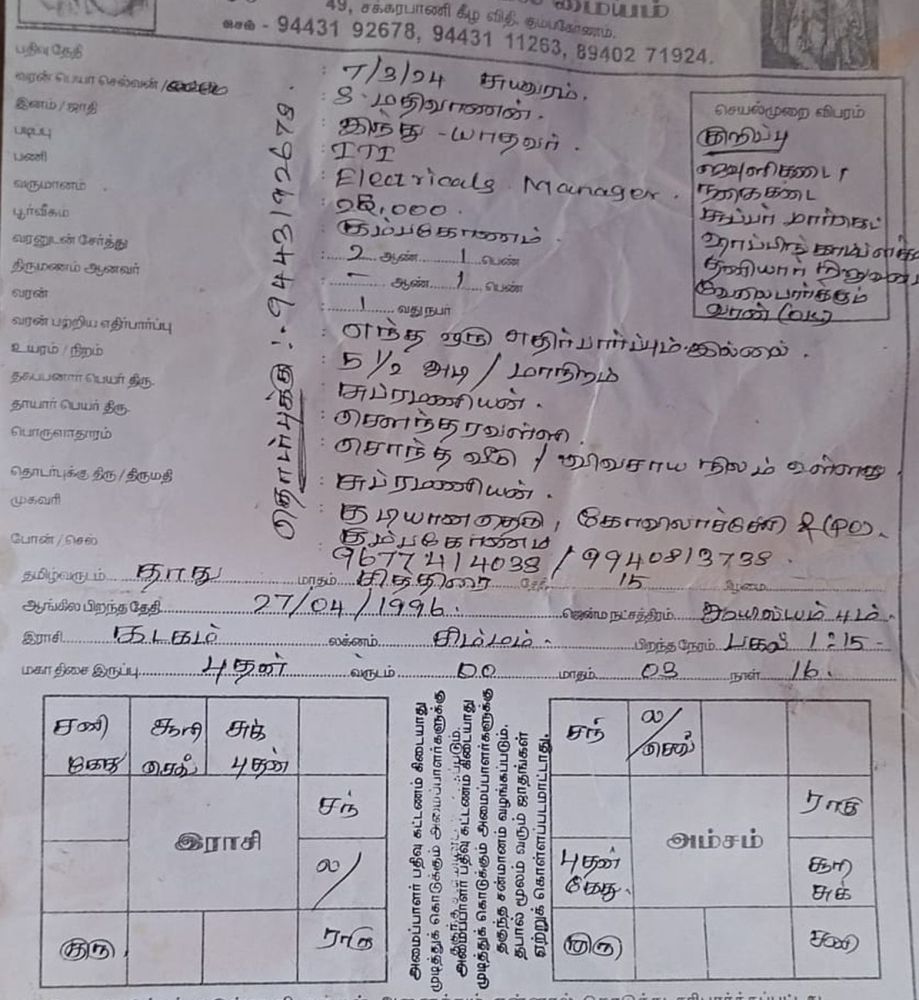 49, சக்கரபாணி கீழ வீதி, கும்பகோணம்.
செல் - 94431 92678, 94431 11263, 89402 71924.
பதிவு தேதி : 7/3/24
வரன் பெயர் செல்வன் / : S. மதிவாணன்.
இனம் / ஜாதி : இந்து - யாதவர்.
படிப்பு : ITI
பணி : Electricals Manager.
வருமானம் : 25,000.
பூர்வீகம் : கும்பகோணம்.
வரனுடன் சேர்த்து : 2 ஆண் 1 பெண்
திருமணம் ஆனவர் : - ஆண் 1 பெண்
வரன் : 1 வது நபர்
வரன் பற்றிய எதிர்பார்ப்பு : எந்த ஒரு எதிர்பார்ப்பும் இல்லை.
உயரம் / நிறம் : 5 1/2 அடி / மாநிறம்
தகப்பனார் பெயர் திரு. : சுப்ரமணியன்.
தாயார் பெயர் திரு. : சௌந்தரவள்ளி.
பொருளாதாரம் : சொந்த வீடு / விவசாய நிலம் உள்ளது.
தொடர்புக்கு திரு / திருமதி : சுப்ரமணியன்.
முகவரி : குடியானதெரு,
கும்பகோணம்
போன் / செல் 9677414038 / 9940813738.
தொடர்புக்கு :- 9443192678.
செயல்முறை விபரம்
குறிப்பு
ஜவுளிகடை,
நகைகடை
சூப்பர் மார்கெட்
தனியார் நிறுவன
வேலைபார்க்கும்
வரன் (ok)
தமிழ்வருடம் தாது மாதம் சித்திரை தேதி 15 கிழமை
ஆங்கில பிறந்த தேதி 27/04/1996. ஜென்ம நட்சத்திரம் ஆயில்யம் 4ம்.
இராசி கடகம் லக்னம் சிம்மம். பிறந்த நேரம் பகல் 1:15-
மகா திசை இருப்பு புதன் வருடம் 00 மாதம் 03 நாள் 16.
சனி கேது
சூரி செவ்
சுக் புதன்
சந்
இராசி
ல/
குரு.
ராகு
அமைப்பாளர் பதிவு கட்டணம் கிடையாது
முடித்துக் கொடுக்கும் அமைப்பாளர்களுக்கு
அமைப்பாளர் பதிவு கட்டணம் கிடையாது
முடித்துக் கொடுக்கும் அமைப்பாளர்களுக்கு
தகுந்த சன்மானம் வழங்கப்படும்.
தபால் மூலம் வரும் ஜாதங்கள்
ஏற்றுக் கொள்ளப்படமாட்டாது.
சந்
ல/ செவ்
ராகு
அம்சம்
புதன் கேது.
சூரி சுக்
குரு
சனி